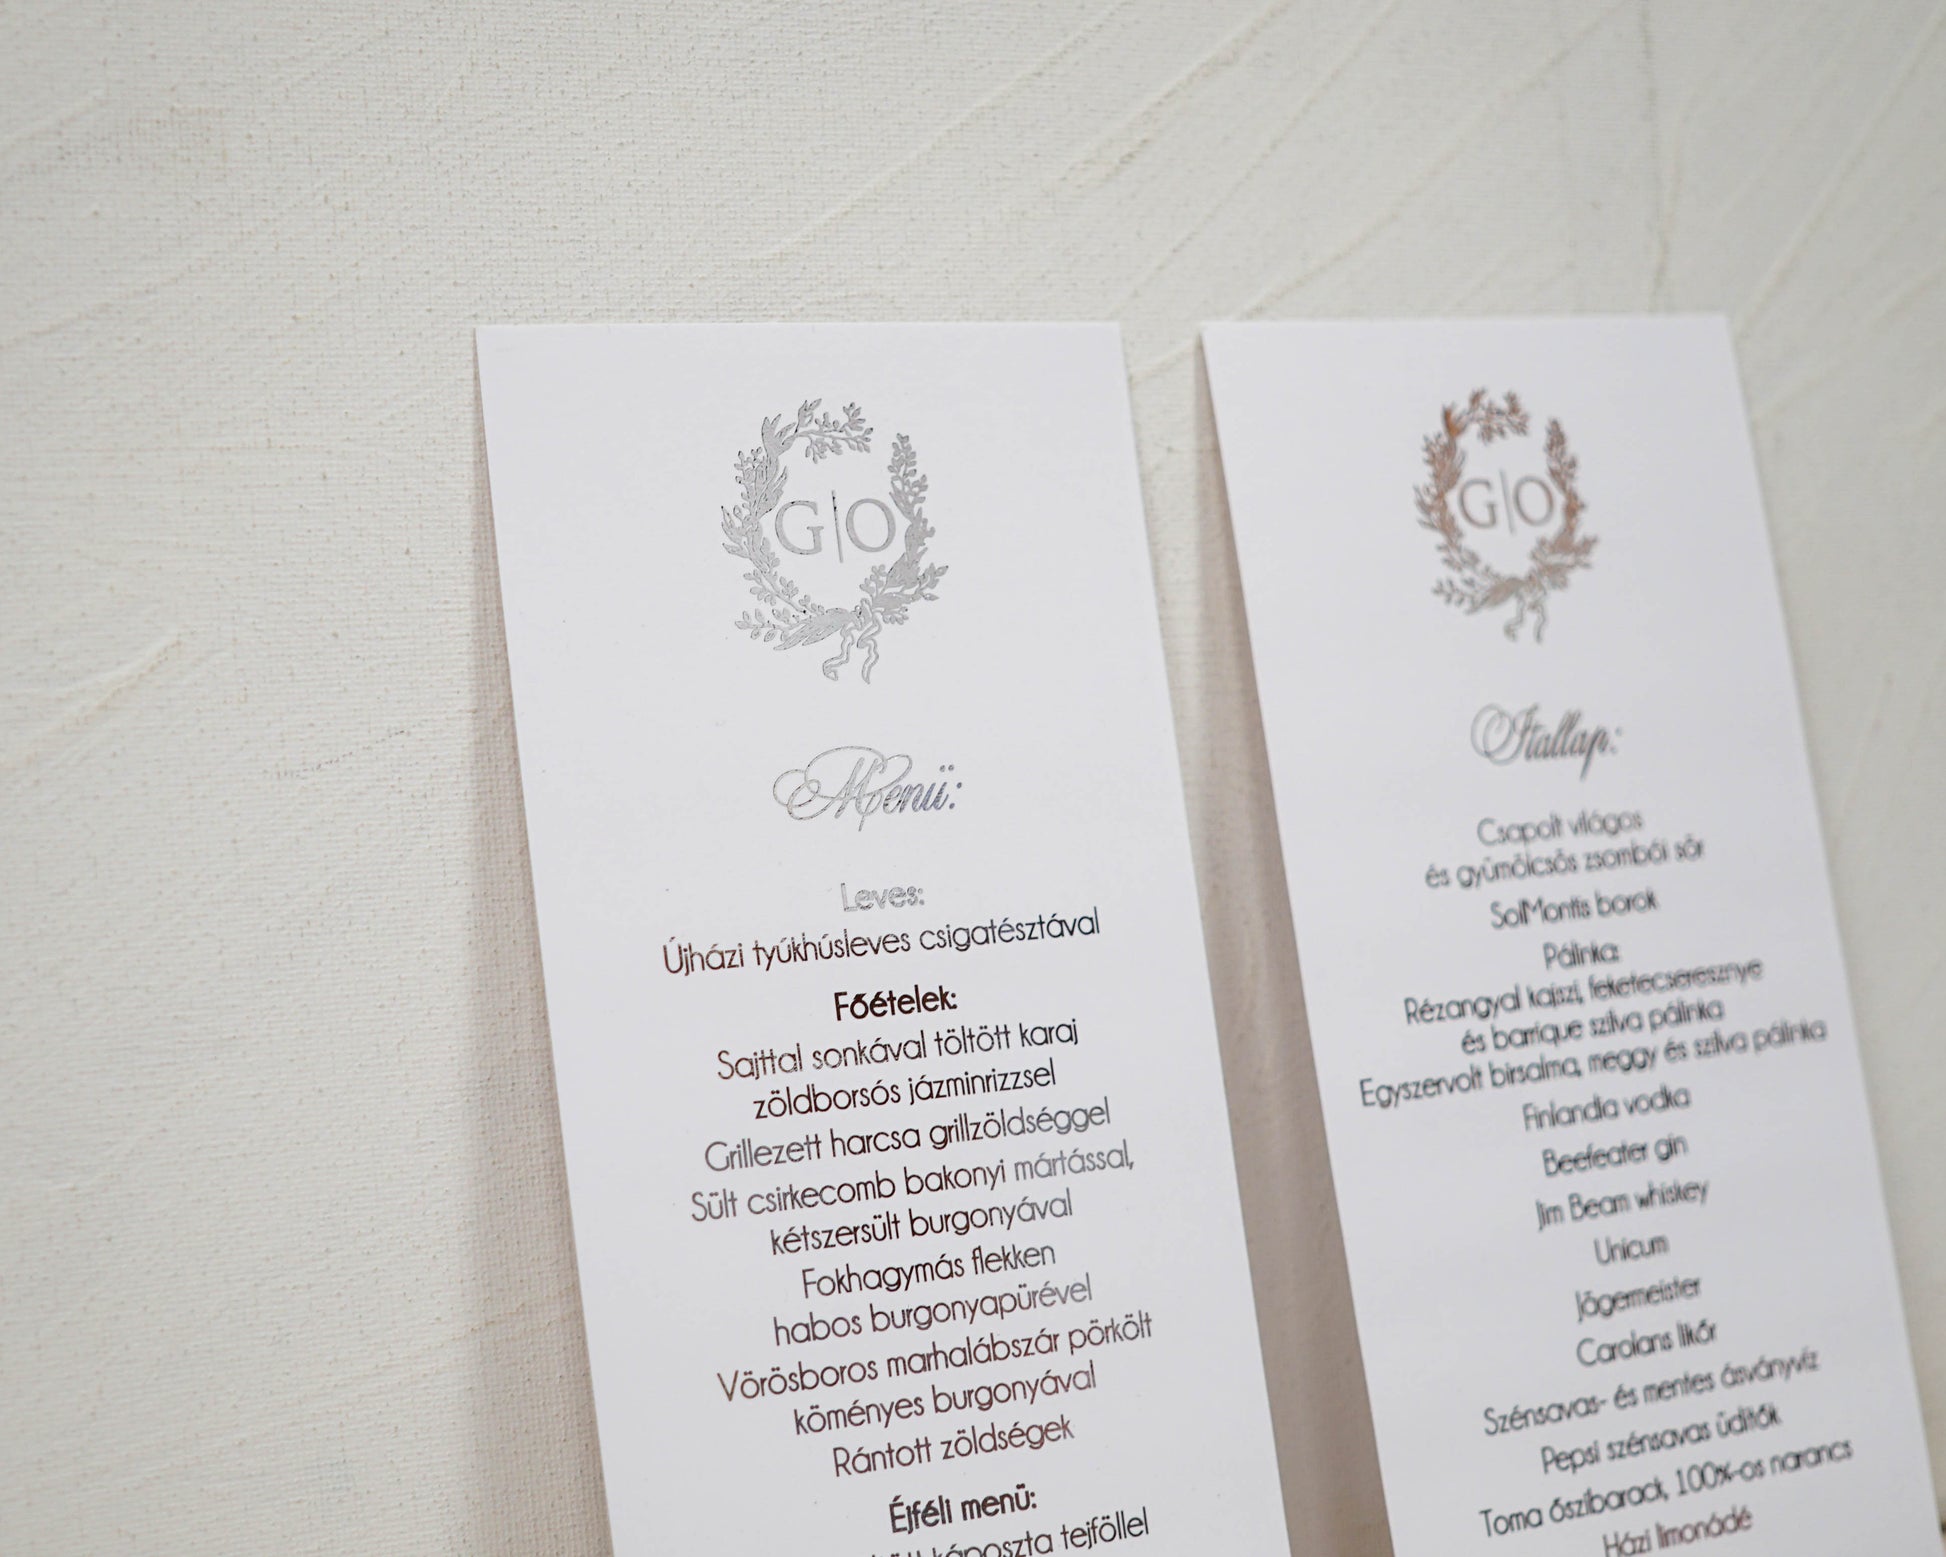 G|O
Menü:
Leves:
Újházi tyúkhúsleves csigatésztával
Főételek:
Sajttal sonkával töltött karaj
zöldborsós jázminrizzsel
Grillezett harcsa grillzöldséggel
Sült csirkecomb bakonyi mártással,
kétszersült burgonyával
Fokhagymás flekken
habos burgonyapürével
Vörösboros marhalábszár pörkölt
köményes burgonyával
Rántott zöldségek
Éjféli menü:
káposzta tejföllel
G|O
Itallap:
Csapolt világos
és gyümölcsös zsombói sör
SolMontis borok
Pálinka:
Rézangyal kajszi, feketecseresznye
és barrique szilva pálinka
Egyszervolt birsalma, meggy és szilva pálinka
Finlandia vodka
Beefeater gin
Jim Beam whiskey
Unicum
Jägermeister
Carolans likőr
Szénsavas- és mentes ásványvíz
Pepsi szénsavas üdítők
Toma őszibarack, 100%-os narancs
Házi limonádé